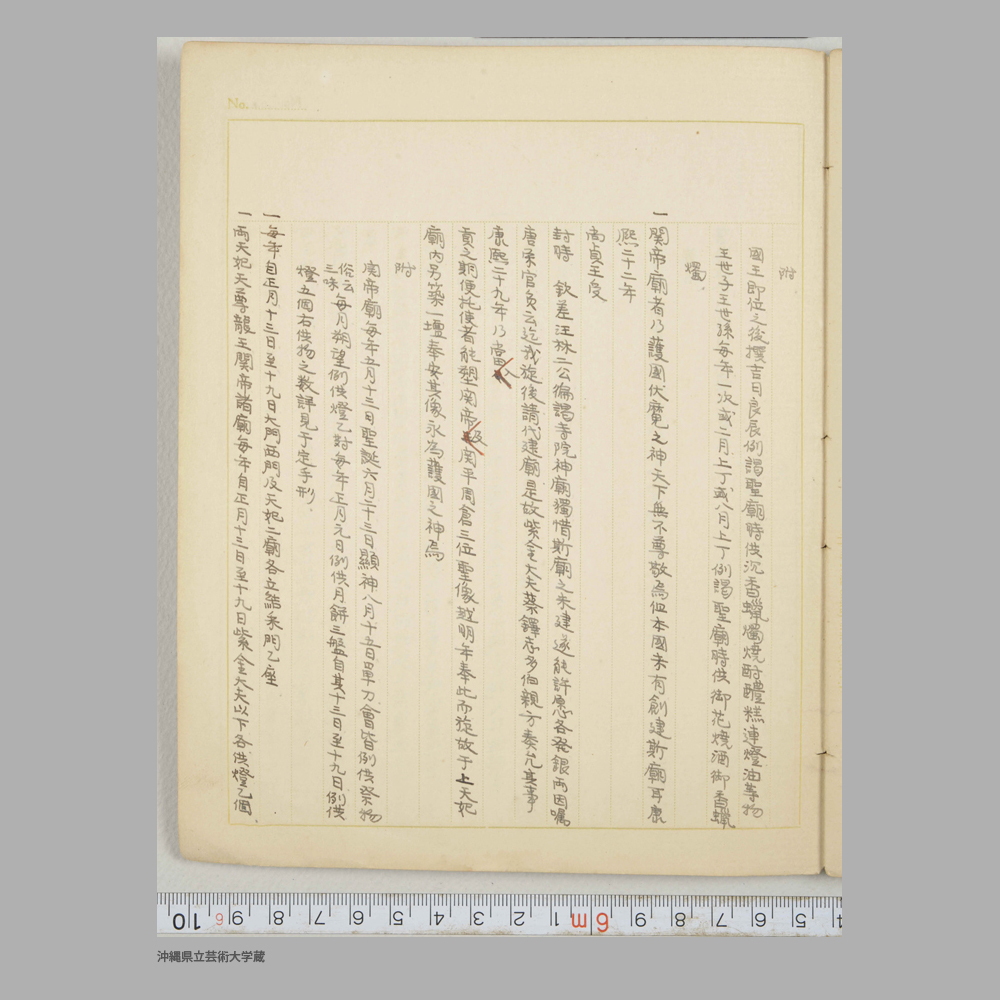 附
國王即位之後撰吉日良辰例謁聖廟時供沉香蠟燭燒酎醴糕連燈油等物
王世子王世孫每年一次或二月上丁或八月上丁例謁聖廟時供御花燒酒御香蠟
燭
一關帝廟者乃護國伏魔之神天下無不尊敬焉但本國未有創建斯廟耳康
熙二十二年
尚貞王受
封時 欽差汪林二公徧謁寺院神廟獨惜斯廟之未建遂能許愿各發銀兩因囑
唐榮官員云迄我旋後請代建廟是故紫金大夫蔡鐸志多伯親方奏允其事
康熙二十九年乃當入
貢之期便托使者能塑関帝及関平周倉三位聖像越明年奉此而旋故于上天妃
廟內另築一壇奉安其像永為護國之神焉
附
関帝廟每年五月十三日聖誕六月二十三日顯神八月十五日單刀會皆例供祭物
俗云三味每月朔望例供燈乙對每年正月元日例供月餅三盤自其十三日至十九日例供
燈五個右供物之數詳見于定手形
一每年自正月十三日至十九日大門西門及天妃二廟各立結釆門乙座
一兩天妃天尊龍王關帝諸廟每年自正月十三日至十九日紫金大夫以下各供燈乙個
No.
10 6 9 8 7 6 5 4 3 2 1 6m 9 8 7 6 5 4
沖縄県立芸術大学蔵